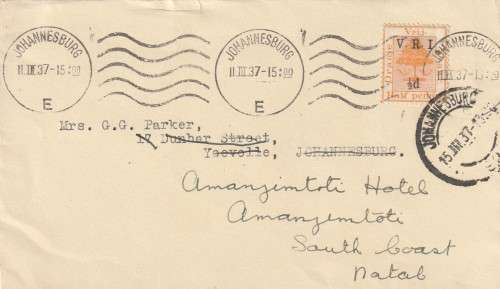 JOHANNESBURG
11.III.37-15:00
E
JOHANNESBURG
11.III.37-15:00
E
JOHANNESBURG
37-15:00
V. R. I.
½d
JOHANNESBURG
15.III.37
Mrs. G.G. Parker,
17 Dunbar Street,
Yeoville, JOHANNESBURG.
Amanzimtoti Hotel
Amanzimtoti
South Coast
Natal